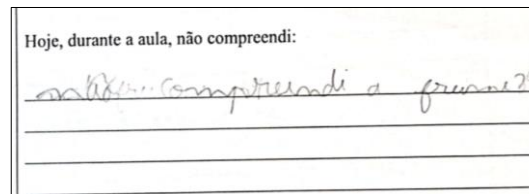 Hoje, durante a aula, não compreendi:
compreendi a